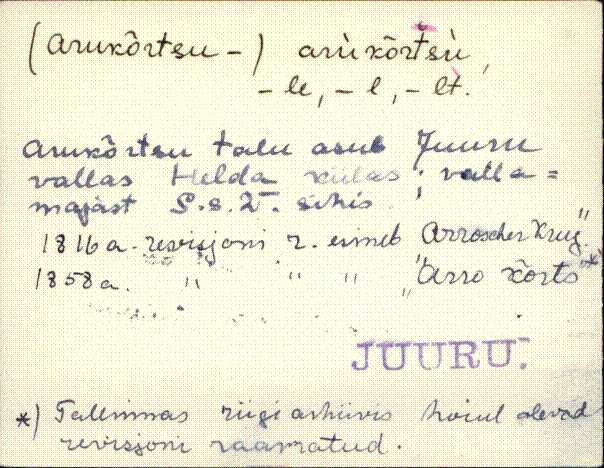 (arukõrtsu –) arùkõrtsù,
– le, – l, – lt.
arukõrtsu talu asub Juuru
vallas Helda külas; valla=
majast S.s.W. sihis.
1816 a. revisjoni r. esineb "Arroscher Krug".
1858 a. " " " "Arro Körts" *
JUURU.
*) Tallinnas riigiarhiivis hoiul olevad
revisjoni raamatud.